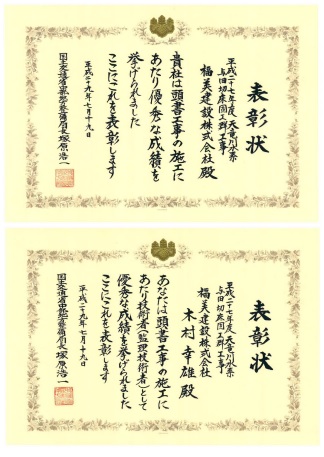 表彰状
平成二十七年度 天竜川水系
与田切床固工群工事
福美建設株式会社 殿
貴社は頭書工事の施工に
あたり優秀な成績を
挙げられました
ここにこれを表彰します
平成二十九年七月十九日
国土交通省中部地方整備局長 塚原浩一
表彰状
平成二十七年度 天竜川水系
与田切床固工群工事
福美建設株式会社
木村幸雄殿
あなたは頭書工事の施工に
あたり技術者(監理技術者)として
優秀な成績を挙げられました
ここにこれを表彰します
平成二十九年七月十九日
国土交通省中部地方整備局長 塚原浩一